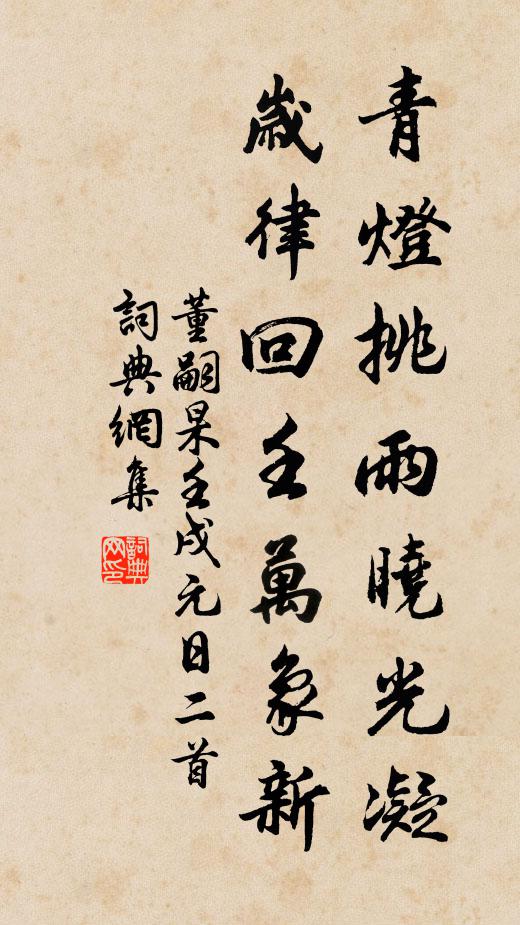 青燈挑雨曉光凝
歲律回壬萬象新
董嗣杲壬戌元日二首
詞典網集
詞典網印